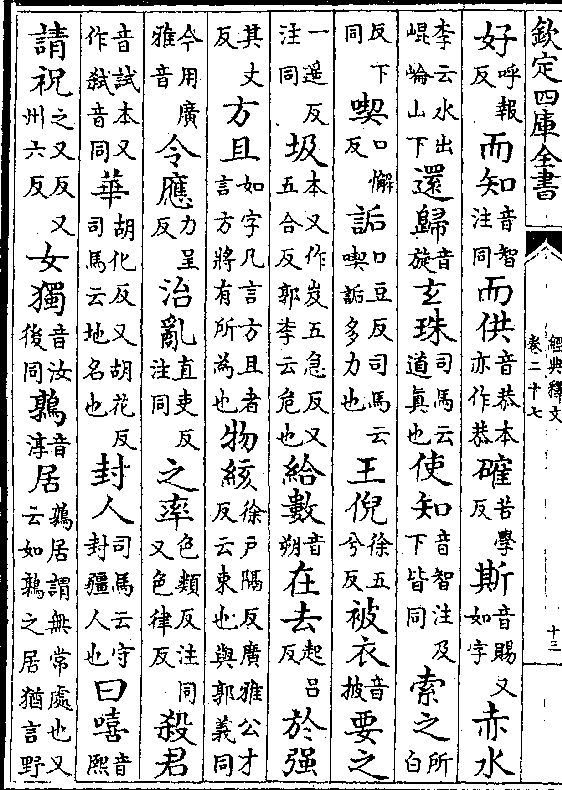 欽定四庫全書
經典釋文
卷二十七
十三
好呼報反而知音智注同而供音恭本亦作恭確苦學反斯音賜又如字赤水
李云水出崐崘山下還歸音旋玄珠司馬云道真也使知音智注及下皆同索之所白
反下同喫口懈反詬口豆反司馬云喫詬多力也王倪徐五兮反被衣音披要之
一遥反注同圾本又作岌五急反又五合反郭李云危也給數音朔在去起吕反於强
其丈反方且如字凡言方且者言方將有所為也物絯徐户隔反廣雅公才反云束也與郭義同
今用廣雅音令應力呈反治亂直吏反注同之率色類反注同又色律反殺君
音試本又作弑音同華胡化反又胡花反司馬云地名也封人司馬云守封疆人也曰嘻音熙
請祝之又反又州六反女獨音汝後同鶉音淳居鶉居謂無常處也又云如鶉之居猶言野